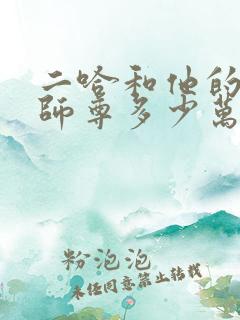 二哈和他的
師尊多少萬
粉泡泡
未经同意禁止转载